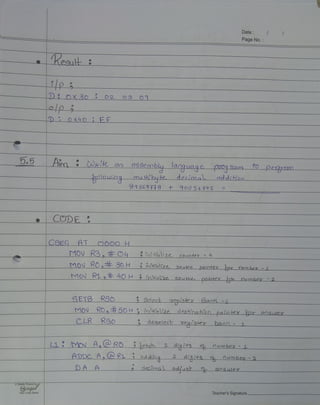 Date : / /
Page No. :
• Result :
I/p :
D : 0X30 : 02 03 07
O/p :
D : 0X40 : EF
5.5 Aim : Write an assembly language program to perform
following multibyte decimal addition
• CODE :
CSEG AT 0000 H
MOV R3, # 04 ; Initialize counter = 4
MOV R0, # 30H ; Initialize source pointer for number - 1
MOV R1, # 40H ; Initialize source pointer for number - 2
SETB RS0 ; Select register Bank - 1
MOV R0, # 50H ; Initialize destination pointer for answer
CLR RS0 ; deselect register bank - 1
L1 : MOV A, @R0 ; fetch 2 digits of number - 1
ADDC A, @R1 ; adding 2 digits of number - 2
DA A ; decimal adjust of answer
Teacher's Signature